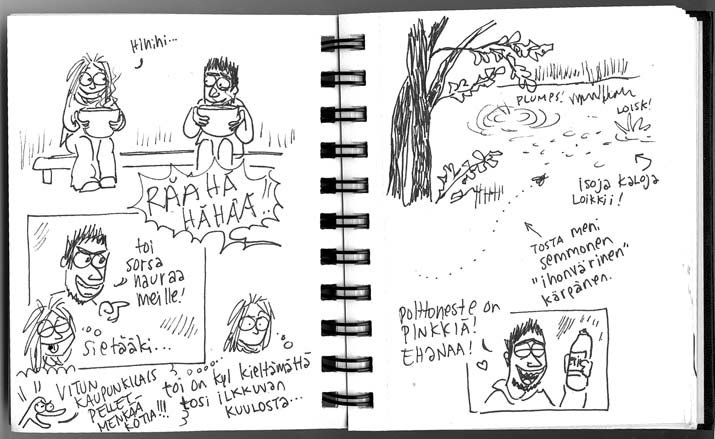 Hihihi...
RÄÄHÄ
HÄHÄÄ...
toi
sorsa
nauraa
meille!
sietääki...
VITUN
KAUPUNKILAIS
PELLET-
MENKÄÄ
KOTIA!!!
toi on kyl kieltämättä
tosi ilkkuvan
kuulosta...
PLUMPS!
LOISK!
isoja kaloja
loikkii!
TOSTA meni
semmonen
"ihonvärinen"
kärpänen.
polttoneste on
PINKKIÄ!
EHANAA!